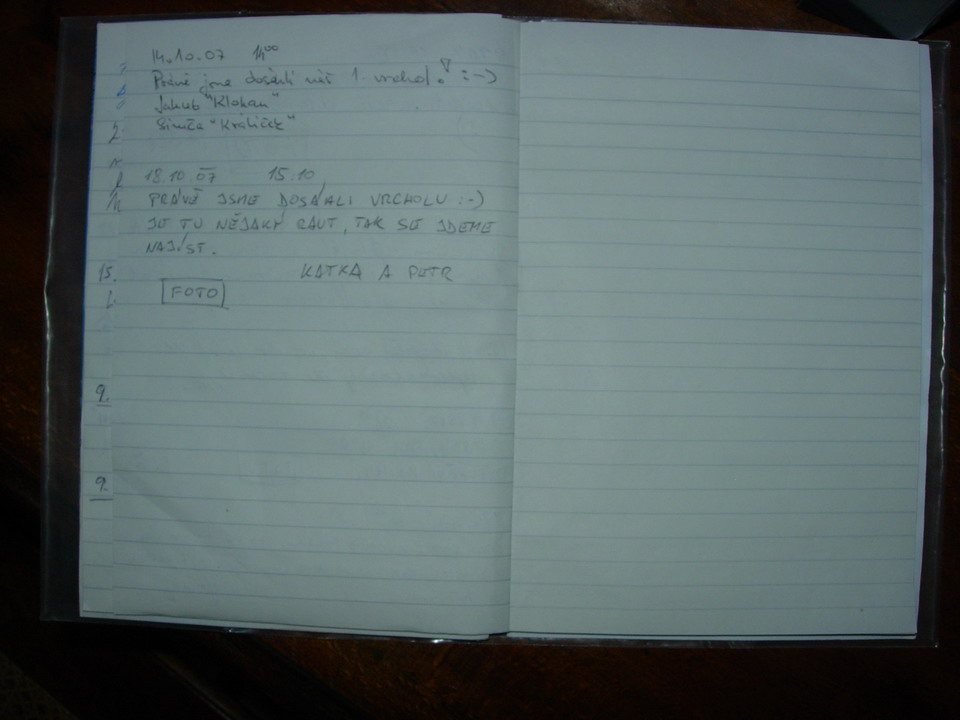 14.10.07 14⁰⁰
Právě jsme dosáhli náš 1. vrchol! :-)
Jakub "Klokan"
Simča "Králíček"
18.10.07 15.10
PRÁVĚ JSME DOSÁHLI VRCHOLU :-)
JE TU NĚJAKÝ RAUT, TAK SE JDEME
NAJÍST.
KATKA A PETR
FOTO
9.
9.